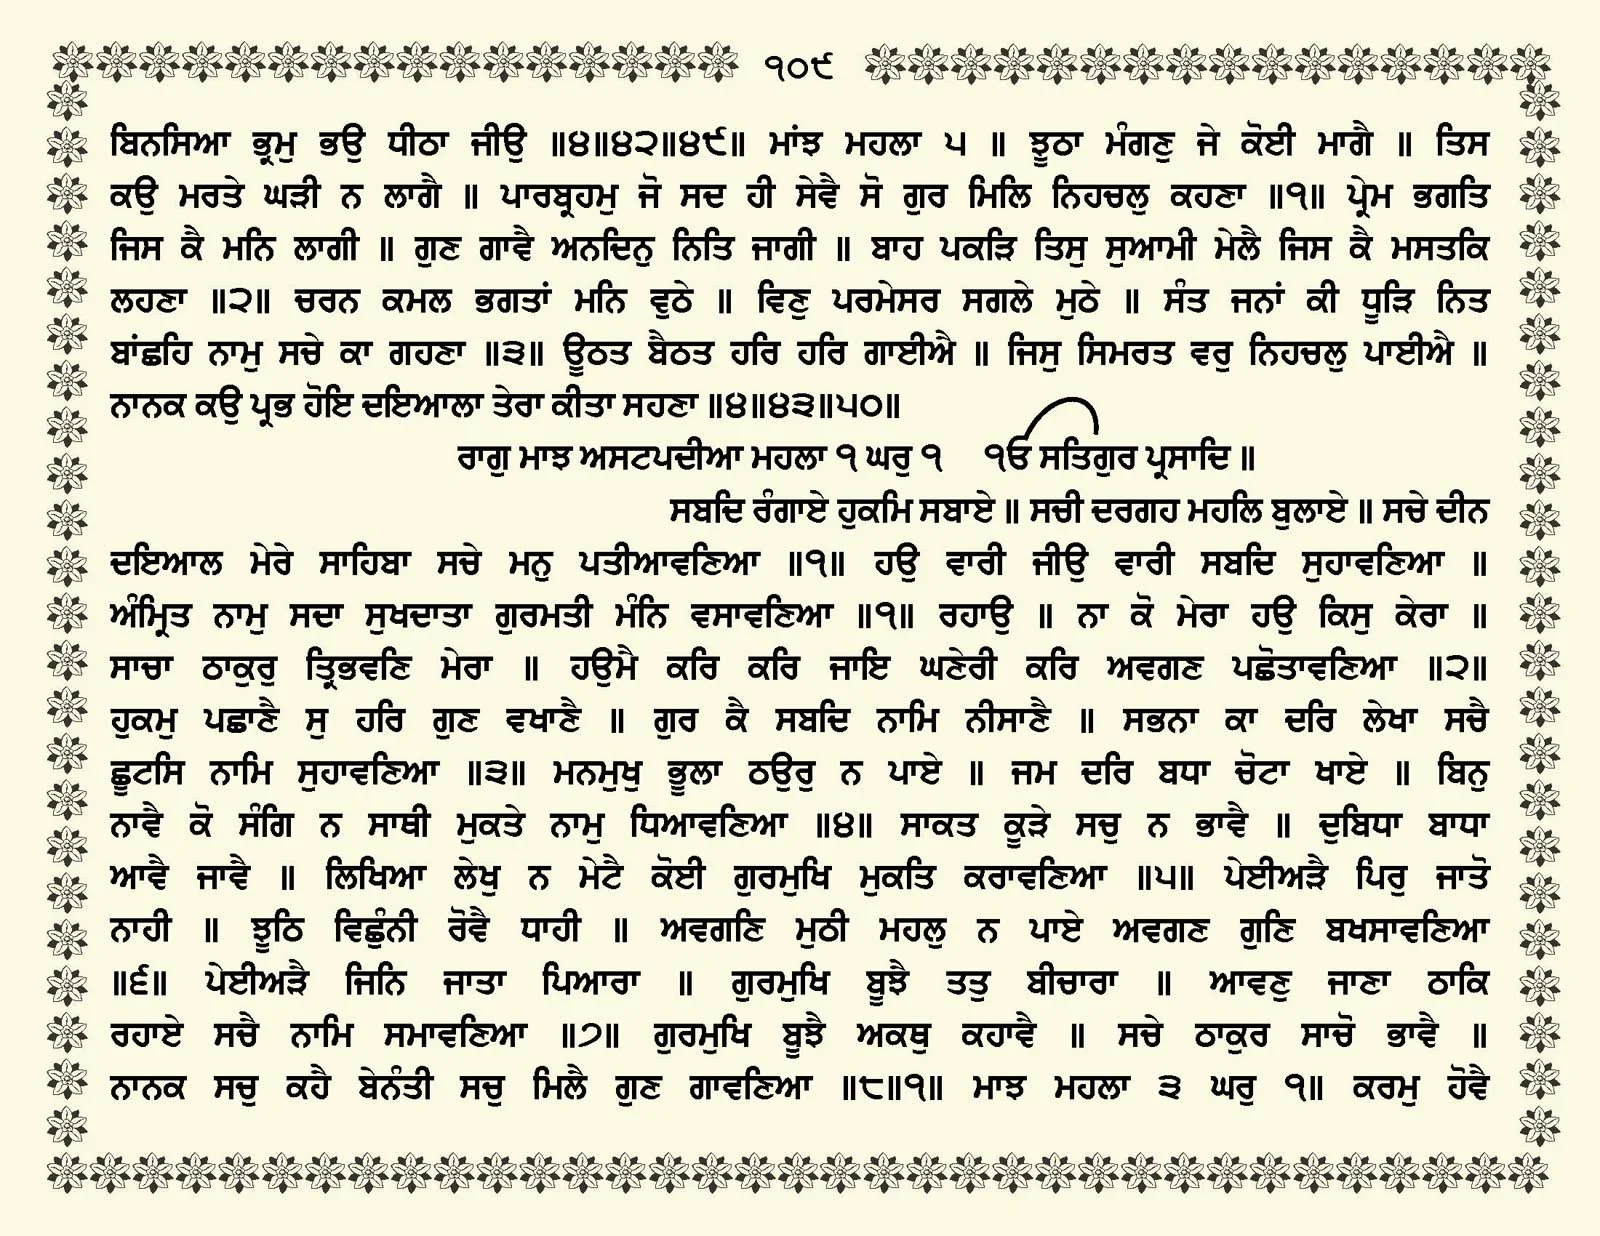 ੧੦੯
ਬਿਨਸਿਆ ਭ੍ਰਮੁ ਭਉ ਧੀਠਾ ਜੀਉ ॥੪॥੪੨॥੪੯॥ ਮਾਂਝ ਮਹਲਾ ੫ ॥ ਝੂਠਾ ਮੰਗਣੁ ਜੇ ਕੋਈ ਮਾਗੈ ॥ ਤਿਸ
ਕਉ ਮਰਤੇ ਘੜੀ ਨ ਲਾਗੈ ॥ ਪਾਰਬ੍ਰਹਮੁ ਜੋ ਸਦ ਹੀ ਸੇਵੈ ਸੋ ਗੁਰ ਮਿਲਿ ਨਿਹਚਲੁ ਕਹਣਾ ॥੧॥ ਪ੍ਰੇਮ ਭਗਤਿ
ਜਿਸ ਕੈ ਮਨਿ ਲਾਗੀ ॥ ਗੁਣ ਗਾਵੈ ਅਨਦਿਨੁ ਨਿਤਿ ਜਾਗੀ ॥ ਬਾਹ ਪਕੜਿ ਤਿਸੁ ਸੁਆਮੀ ਮੇਲੈ ਜਿਸ ਕੈ ਮਸਤਕਿ
ਲਹਣਾ ॥੨॥ ਚਰਨ ਕਮਲ ਭਗਤਾਂ ਮਨਿ ਵੁਠੇ ॥ ਵਿਣੁ ਪਰਮੇਸਰ ਸਗਲੇ ਮੁਠੇ ॥ ਸੰਤ ਜਨਾਂ ਕੀ ਧੂੜਿ ਨਿਤ
ਬਾਂਛਹਿ ਨਾਮੁ ਸਚੇ ਕਾ ਗਹਣਾ ॥੩॥ ਊਠਤ ਬੈਠਤ ਹਰਿ ਹਰਿ ਗਾਈਐ ॥ ਜਿਸੁ ਸਿਮਰਤ ਵਰੁ ਨਿਹਚਲੁ ਪਾਈਐ ॥
ਨਾਨਕ ਕਉ ਪ੍ਰਭ ਹੋਇ ਦਇਆਲਾ ਤੇਰਾ ਕੀਤਾ ਸਹਣਾ ॥੪॥੪੩॥੫੦॥
ਰਾਗੁ ਮਾਝ ਅਸਟਪਦੀਆ ਮਹਲਾ ੧ ਘਰੁ ੧ ੴ ਸਤਿਗੁਰ ਪ੍ਰਸਾਦਿ ॥
ਸਬਦਿ ਰੰਗਾਏ ਹੁਕਮਿ ਸਬਾਏ ॥ ਸਚੀ ਦਰਗਹ ਮਹਲਿ ਬੁਲਾਏ ॥ ਸਚੇ ਦੀਨ
ਦਇਆਲ ਮੇਰੇ ਸਾਹਿਬਾ ਸਚੇ ਮਨੁ ਪਤੀਆਵਣਿਆ ॥੧॥ ਹਉ ਵਾਰੀ ਜੀਉ ਵਾਰੀ ਸਬਦਿ ਸੁਹਾਵਣਿਆ ॥
ਅੰਮ੍ਰਿਤ ਨਾਮੁ ਸਦਾ ਸੁਖਦਾਤਾ ਗੁਰਮਤੀ ਮੰਨਿ ਵਸਾਵਣਿਆ ॥੧॥ ਰਹਾਉ ॥ ਨਾ ਕੋ ਮੇਰਾ ਹਉ ਕਿਸੁ ਕੇਰਾ ॥
ਸਾਚਾ ਠਾਕੁਰੁ ਤ੍ਰਿਭਵਣਿ ਮੇਰਾ ॥ ਹਉਮੈ ਕਰਿ ਕਰਿ ਜਾਇ ਘਣੇਰੀ ਕਰਿ ਅਵਗਣ ਪਛੋਤਾਵਣਿਆ ॥੨॥
ਹੁਕਮੁ ਪਛਾਣੈ ਸੁ ਹਰਿ ਗੁਣ ਵਖਾਣੈ ॥ ਗੁਰ ਕੈ ਸਬਦਿ ਨਾਮਿ ਨੀਸਾਣੈ ॥ ਸਭਨਾ ਕਾ ਦਰਿ ਲੇਖਾ ਸਚੈ
ਛੂਟਸਿ ਨਾਮਿ ਸੁਹਾਵਣਿਆ ॥੩॥ ਮਨਮੁਖੁ ਭੂਲਾ ਠਉਰੁ ਨ ਪਾਏ ॥ ਜਮ ਦਰਿ ਬਧਾ ਚੋਟਾ ਖਾਏ ॥ ਬਿਨੁ
ਨਾਵੈ ਕੋ ਸੰਗਿ ਨ ਸਾਥੀ ਮੁਕਤੇ ਨਾਮੁ ਧਿਆਵਣਿਆ ॥੪॥ ਸਾਕਤ ਕੂੜੇ ਸਚੁ ਨ ਭਾਵੈ ॥ ਦੁਬਿਧਾ ਬਾਧਾ
ਆਵੈ ਜਾਵੈ ॥ ਲਿਖਿਆ ਲੇਖੁ ਨ ਮੇਟੈ ਕੋਈ ਗੁਰਮੁਖਿ ਮੁਕਤਿ ਕਰਾਵਣਿਆ ॥੫॥ ਪੇਈਅੜੈ ਪਿਰੁ ਜਾਤੋ
ਨਾਹੀ ॥ ਝੂਠਿ ਵਿਛੁੰਨੀ ਰੋਵੈ ਧਾਹੀ ॥ ਅਵਗਣਿ ਮੁਠੀ ਮਹਲੁ ਨ ਪਾਏ ਅਵਗਣ ਗੁਣਿ ਬਖਸਾਵਣਿਆ
॥੬॥ ਪੇਈਅੜੈ ਜਿਨਿ ਜਾਤਾ ਪਿਆਰਾ ॥ ਗੁਰਮੁਖਿ ਬੂਝੈ ਤਤੁ ਬੀਚਾਰਾ ॥ ਆਵਣੁ ਜਾਣਾ ਠਾਕਿ
ਰਹਾਏ ਸਚੈ ਨਾਮਿ ਸਮਾਵਣਿਆ ॥੭॥ ਗੁਰਮੁਖਿ ਬੂਝੈ ਅਕਥੁ ਕਹਾਵੈ ॥ ਸਚੇ ਠਾਕੁਰ ਸਾਚੋ ਭਾਵੈ ॥
ਨਾਨਕ ਸਚੁ ਕਹੈ ਬੇਨੰਤੀ ਸਚੁ ਮਿਲੈ ਗੁਣ ਗਾਵਣਿਆ ॥੮॥੧॥ ਮਾਝ ਮਹਲਾ ੩ ਘਰੁ ੧॥ ਕਰਮੁ ਹੋਵੈ